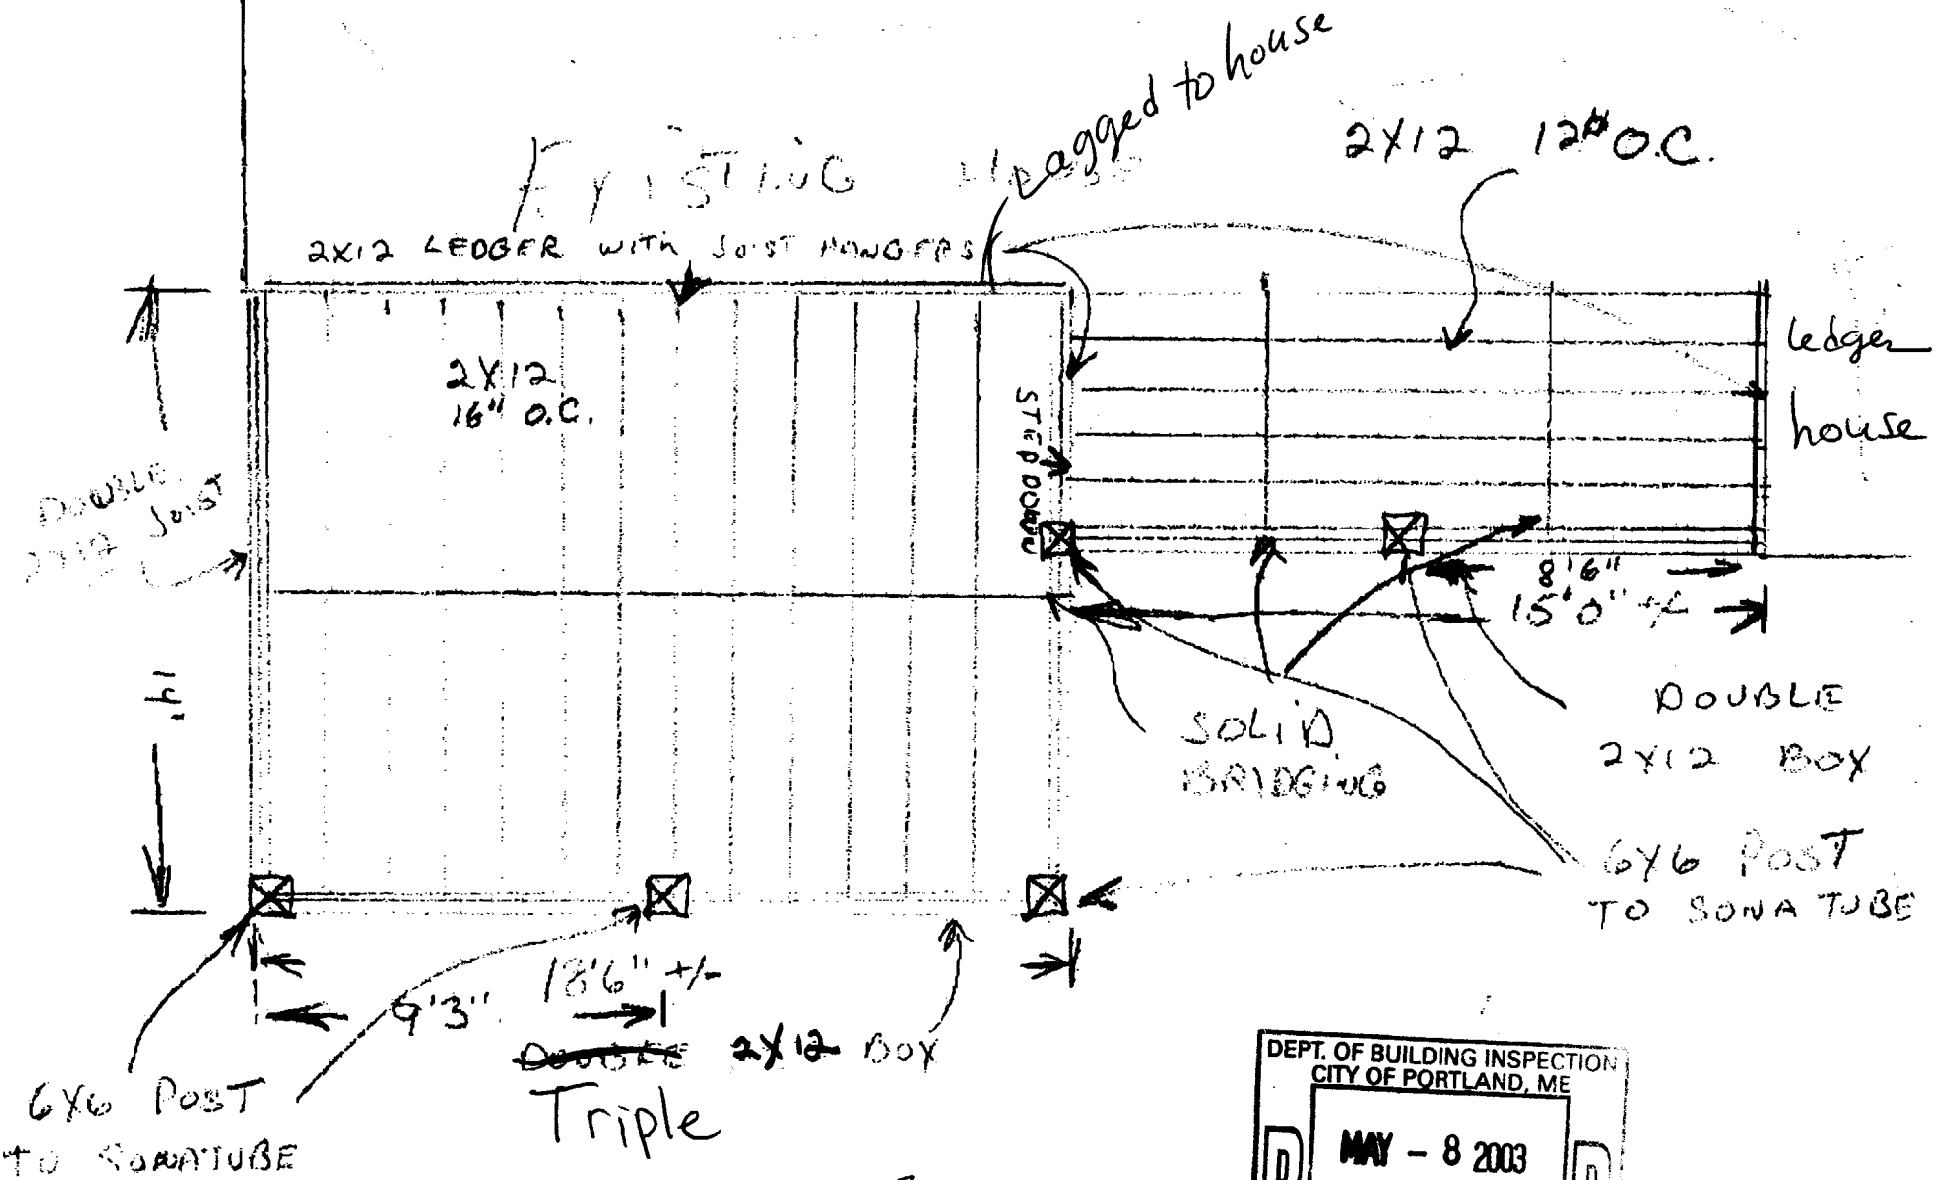 Lagged to house
EXISTING HOUSE
2X12 12" O.C.
2X12 LEDGER WITH JOIST HANGERS
ledger
house
2X12
16" O.C.
STEP DOWN
DOUBLE
2X12 JOIST
8'6"
15'0" +/-
14'
SOLID
BRIDGING
DOUBLE
2X12 BOX
6X6 POST
TO SONA TUBE
18'6" +/-
9'3"
DOUBLE 2X12 BOX
Triple
6X6 POST
TO SONATUBE
DEPT. OF BUILDING INSPECTION
CITY OF PORTLAND, ME
MAY - 8 2003